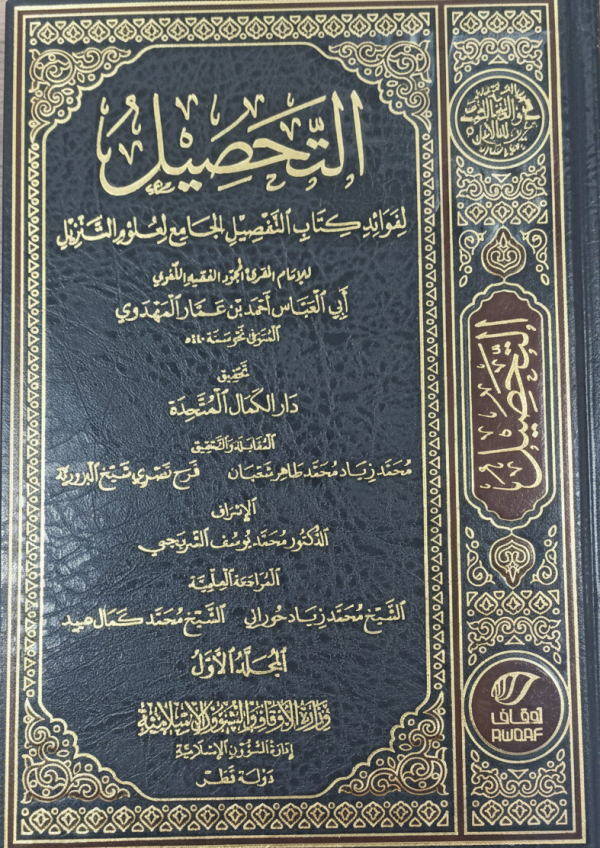 التَّحْصِيْلُ
لِفَوَائِدِ كِتَابِ التَّفْصِيْلِ الجَامِعِ لِعُلُوْمِ التَّنْزِيْلِ
للإمَام المقرئ المجوّد الفقيه اللّغوي
أَبِي العَبَّاس أَحْمَد بْن عَمَّار المَهْدَوي
المتوفى نحو سنة ٤٤٠ھ
تحقيق
دَار الكَمَال المُتَّحِدَة
المُقابلة والتحقيق
مُحَمَّد زيَاد مُحَمَّد طَاهِر شَعْبَان فَرَح نَصْري شَيْخ البزوريّة
الإشراف
الدّكتُور مُحَمَّد يُوسُف الشّربجي
المُرَاجَعَة العِلْمِيَّة
الشَّيْخ مُحَمَّد زيَاد حوراني الشَّيْخ مُحَمَّد كَمَال عبيد
المُجَلَّدُ الأَوَّلُ
وزارة الأوقاف والشؤون الإسلامية
إدَارَة الشُّؤُون الإِسْلَاميَّة
دَولَة قَطَر
التَّحْصِيْلُ
أوقاف
AWQAF